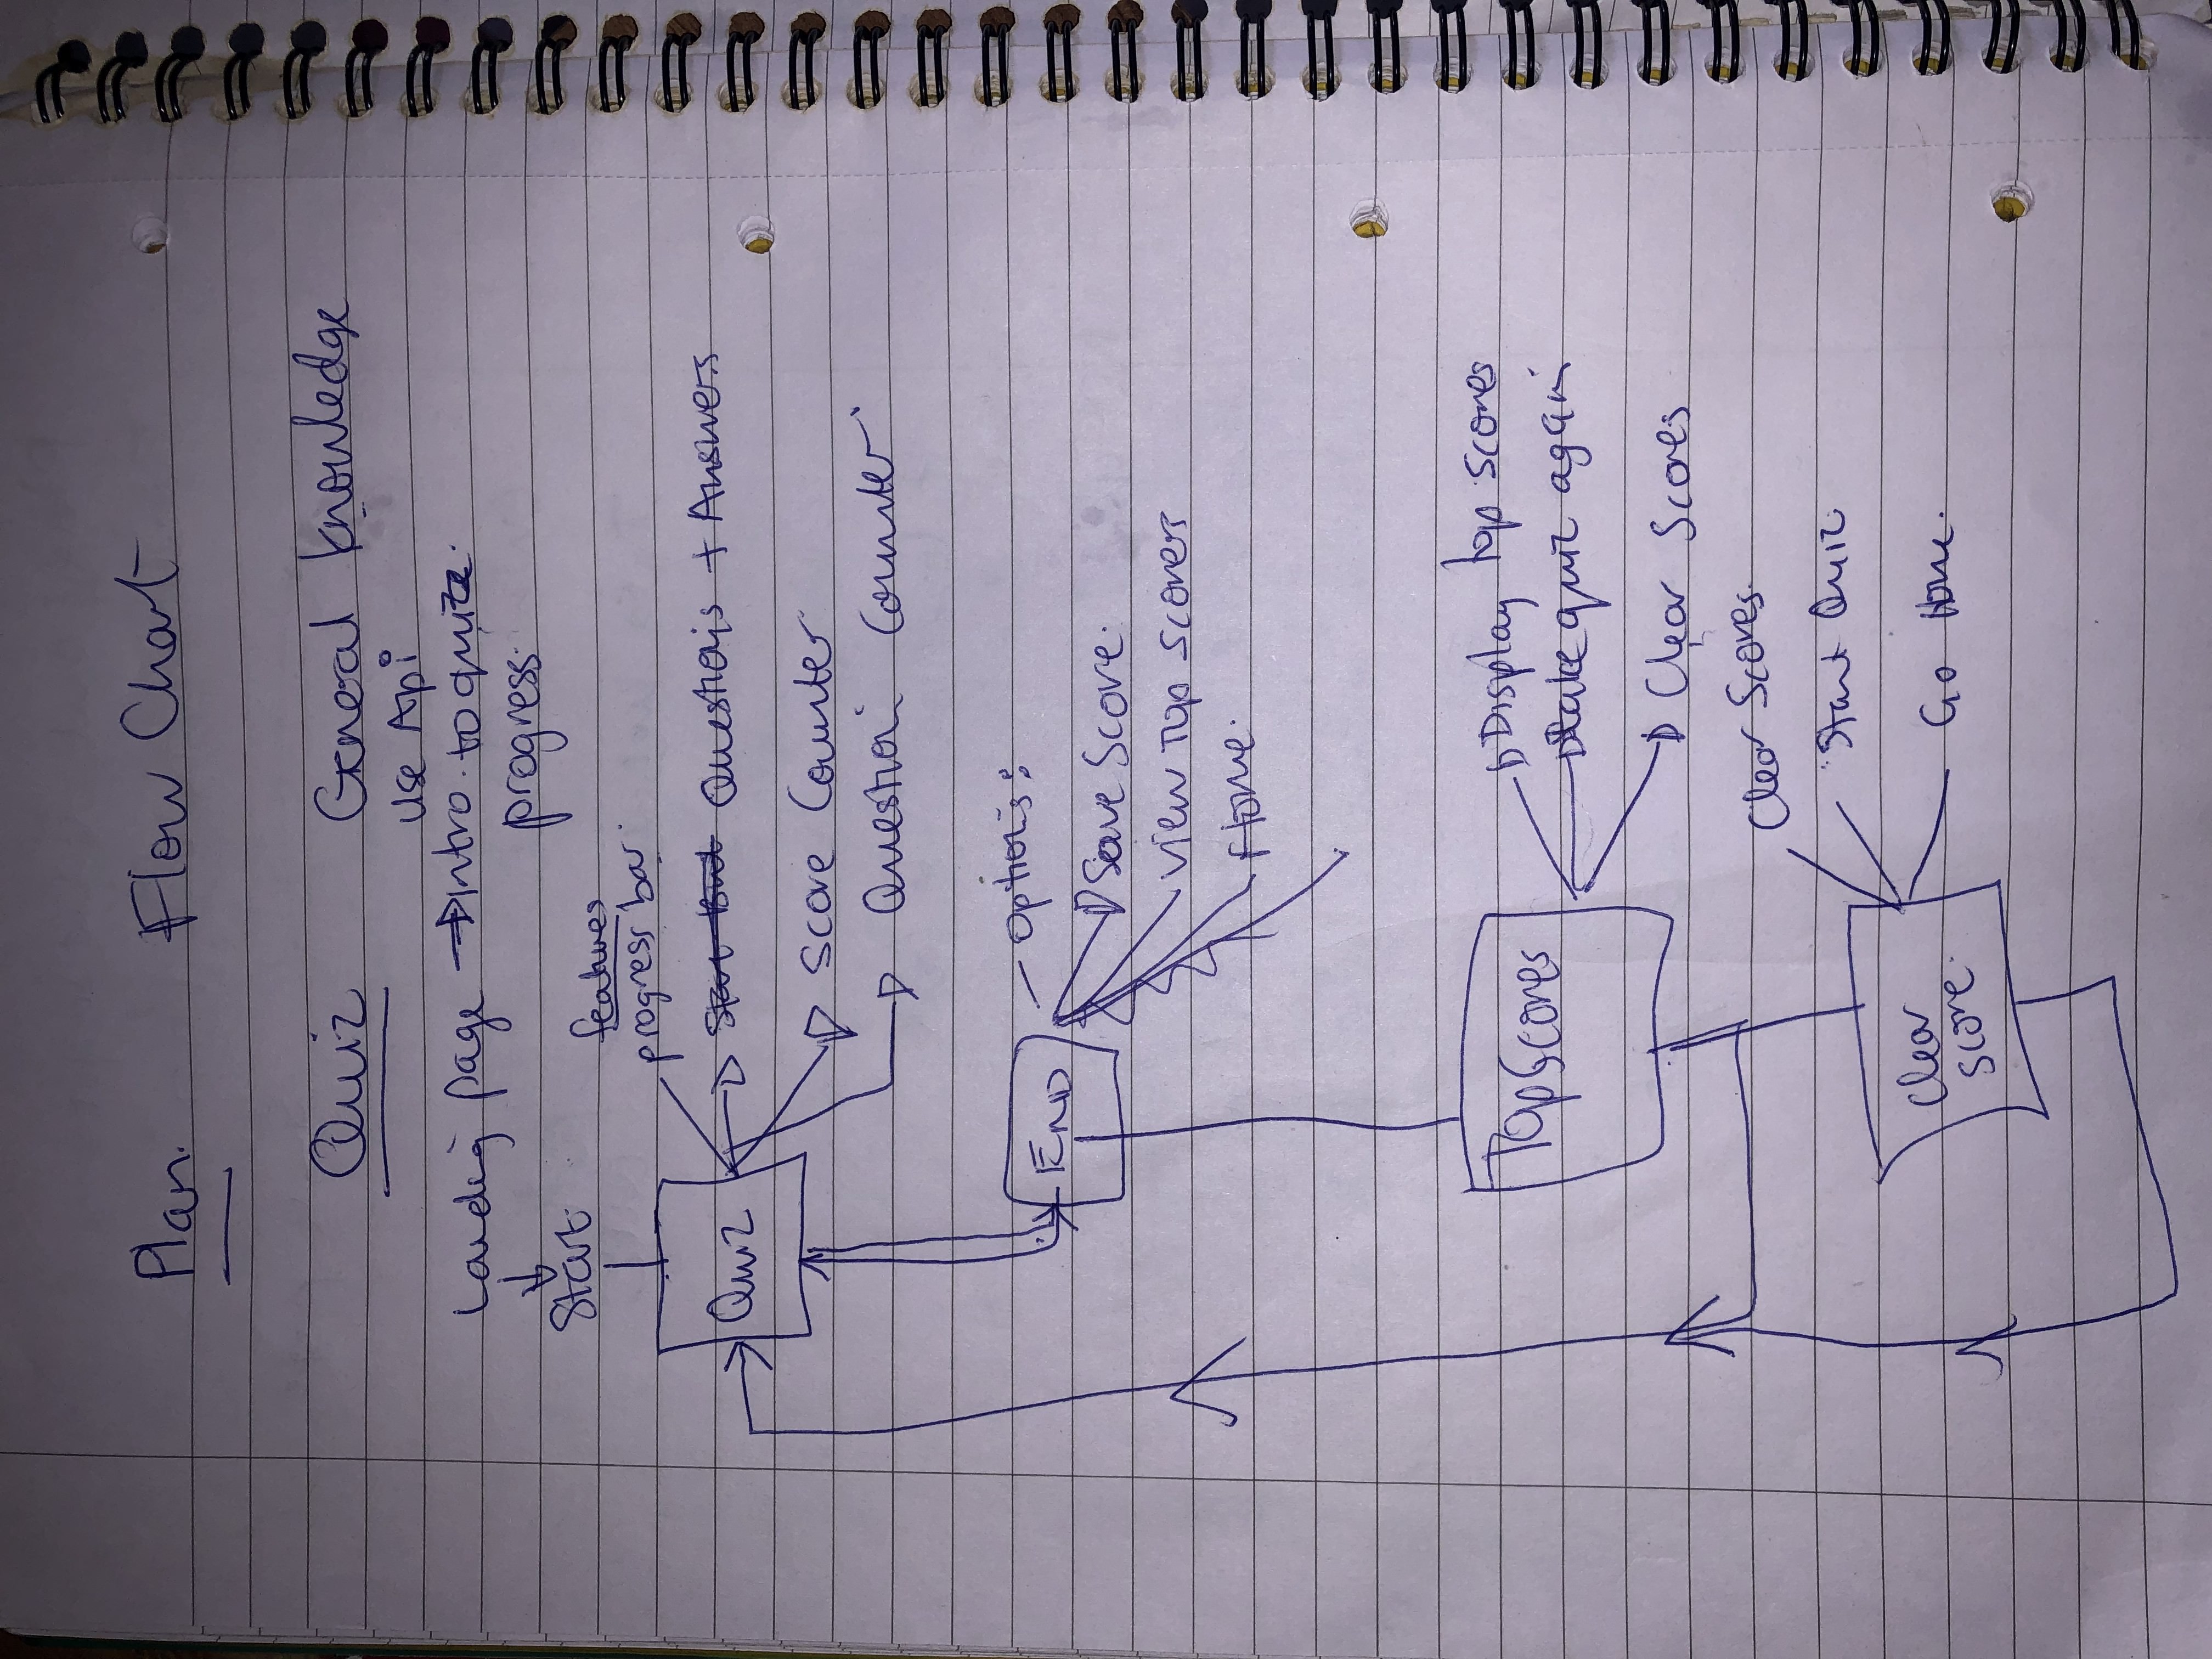 Plan. Flow Chart
Quiz General knowledge
Use Api
Landing page Intro to quiz
progress.
Start
features
progress bar.
Quiz
Start But Questions + Answers
Score Counter
Question Counter
Options:
END
Save Score.
View Top Scorers
Home.
Display top scores
Top Scores
take quiz again
Clear Scores
Clear Scores.
Start Quiz
Clear
Go Home.
Score.